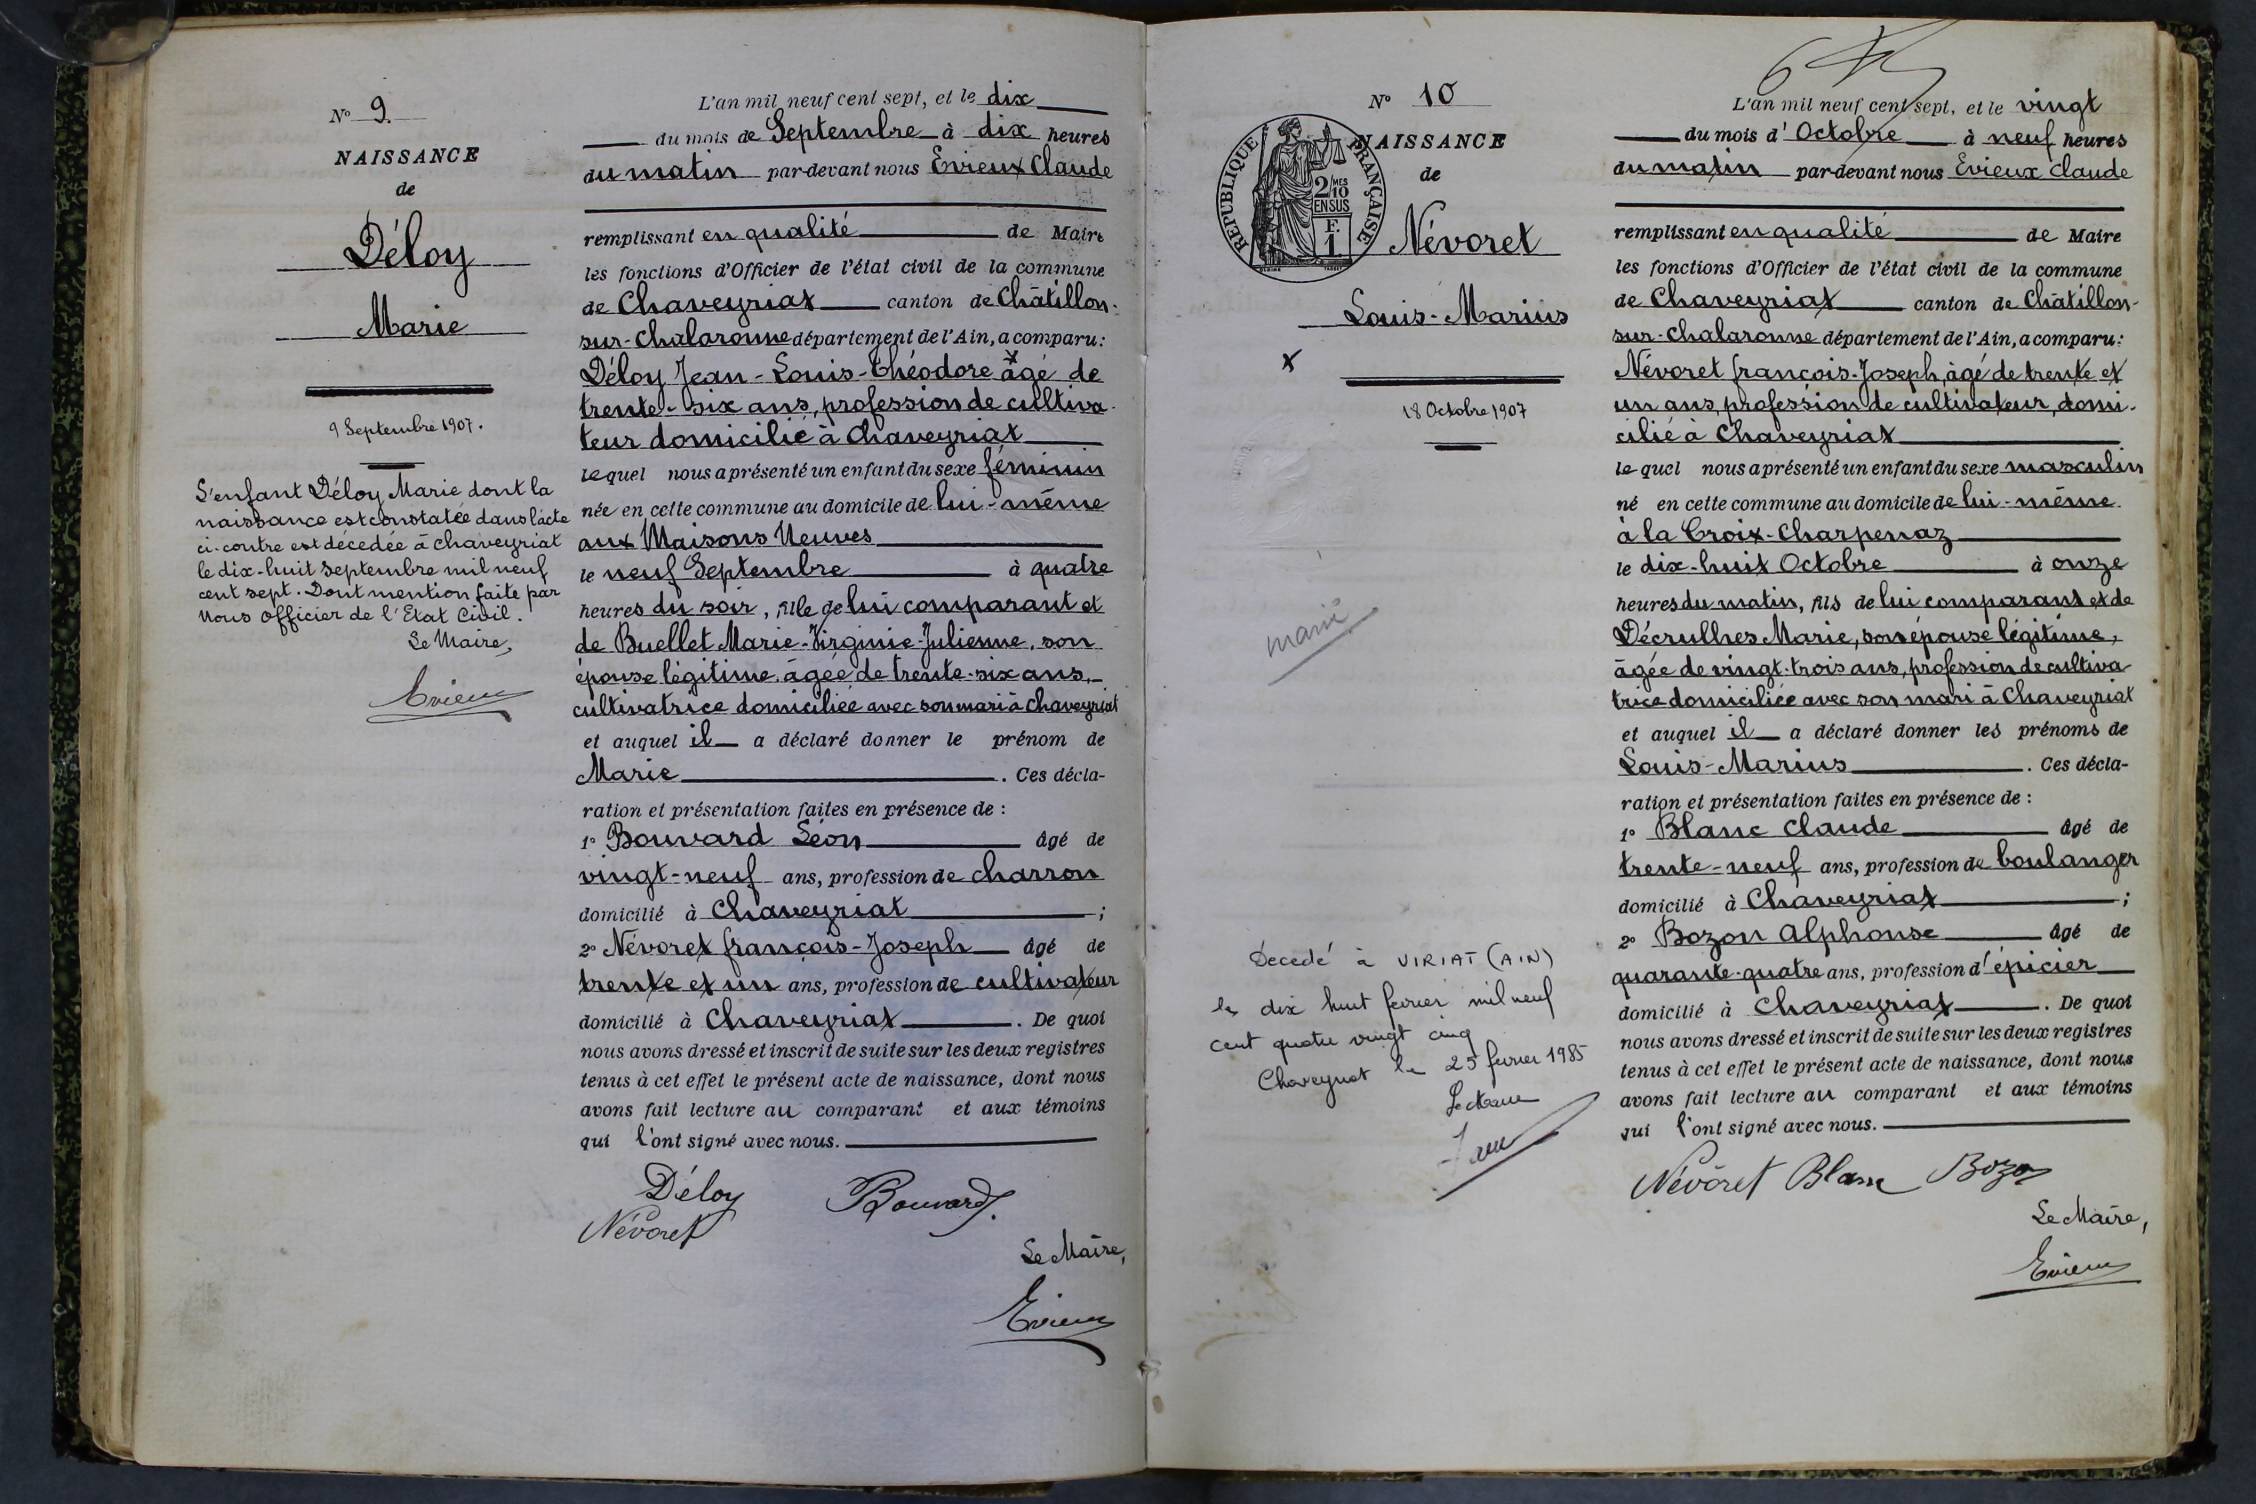 N° 9.
NAISSANCE
de
Déloy
Marie
9 Septembre 1907.
L'enfant Déloy Marie dont la
naissance est constatée dans l'acte
ci-contre est décédée à Chaveyriat
le dix-huit Septembre mil neuf
cent sept. Dont mention faite par
Nous Officier de l'Etat Civil.
Le Maire,
Evieux
L'an mil neuf cent sept, et le dix
du mois de Septembre à dix heures
du matin par-devant nous Evieux Claude
remplissant en qualité de Maire
les fonctions d'Officier de l'état civil de la commune
de Chaveyriat canton de Châtillon-
sur-Chalaronne département de l'Ain, a comparu:
Déloy Jean-Louis-Théodore âgé de
trente-six ans, profession de cultiva-
teur domicilié à Chaveyriat
lequel nous a présenté un enfant du sexe féminin
née en cette commune au domicile de lui-même
aux Maisons Neuves
le neuf Septembre à quatre
heures du soir, fille de lui comparant et
de Buellet Marie-Virginie-Julienne, son
épouse légitime, âgée de trente-six ans,
cultivatrice domiciliée avec son mari à Chaveyriat
et auquel il a déclaré donner le prénom de
Marie. Ces décla-
ration et présentation faites en présence de :
1° Bouvard Léon âgé de
vingt-neuf ans, profession de charron
domicilié à Chaveyriat ;
2° Névoret françois-Joseph âgé de
trente et un ans, profession de cultivateur
domicilié à Chaveyriat. De quoi
nous avons dressé et inscrit de suite sur les deux registres
tenus à cet effet le présent acte de naissance, dont nous
avons fait lecture au comparant et aux témoins
qui l'ont signé avec nous.
Déloy Bouvard
Névoret
Le Maire,
Evieux
N° 10
NAISSANCE
de
REPUBLIQUE FRANÇAISE
2/10 MES
EN SUS
F.
1
Névoret
Louis-Marius
X
18 Octobre 1907
marié
Décédé à VIRIAT (AIN)
le dix huit fevrier mil neuf
cent quatre vingt cinq
Chaveyriat le 25 fevrier 1985
Le Maire
L'an mil neuf cent sept, et le vingt
du mois d'Octobre à neuf heures
du matin par-devant nous Evieux Claude
remplissant en qualité de Maire
les fonctions d'Officier de l'état civil de la commune
de Chaveyriat canton de Châtillon-
sur-Chalaronne département de l'Ain, a comparu:
Névoret françois-Joseph, âgé de trente et
un ans, profession de cultivateur, domi-
cilié à Chaveyriat
lequel nous a présenté un enfant du sexe masculin
né en cette commune au domicile de lui-même
à la Croix-Charpenaz
le dix-huit Octobre à onze
heures du matin, fils de lui comparant et de
Décrulhes Marie, son épouse légitime,
âgée de vingt-trois ans, profession de cultiva
trice domiciliée avec son mari à Chaveyriat
et auquel il a déclaré donner les prénoms de
Louis-Marius. Ces décla-
ration et présentation faites en présence de :
1° Blanc Claude âgé de
trente-neuf ans, profession de boulanger
domicilié à Chaveyriat ;
2° Bozon Alphonse âgé de
quarante-quatre ans, profession d'épicier
domicilié à Chaveyriat. De quoi
nous avons dressé et inscrit de suite sur les deux registres
tenus à cet effet le présent acte de naissance, dont nous
avons fait lecture au comparant et aux témoins
qui l'ont signé avec nous.
Névoret Blanc Bozon
Le Maire,
Evieux